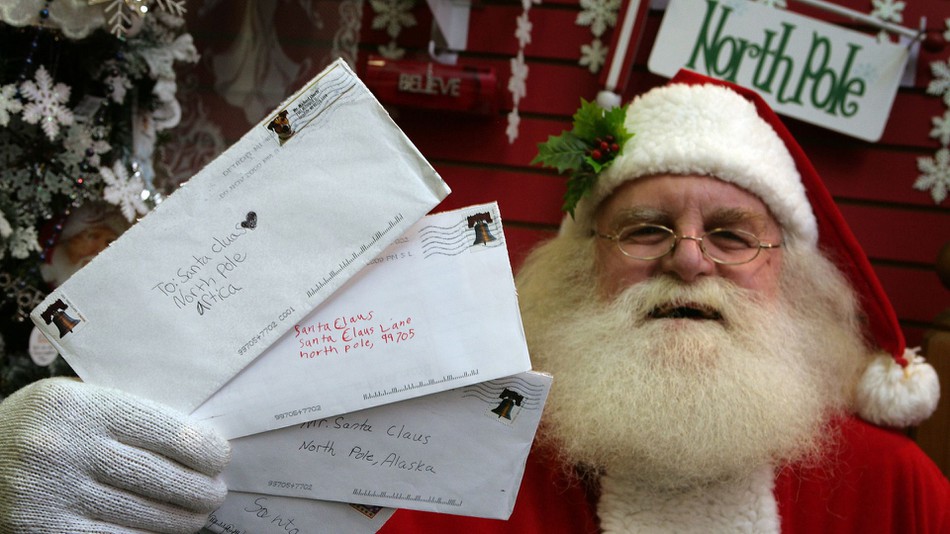 North Pole
BELIEVE
To: Santa Claus
North Pole
artica
99705+7702 C001
Santa Claus
Santa Claus Lane
north pole, 99705
99705+7702
Mr. Santa Claus
North Pole, Alaska
99705+7702
Santa